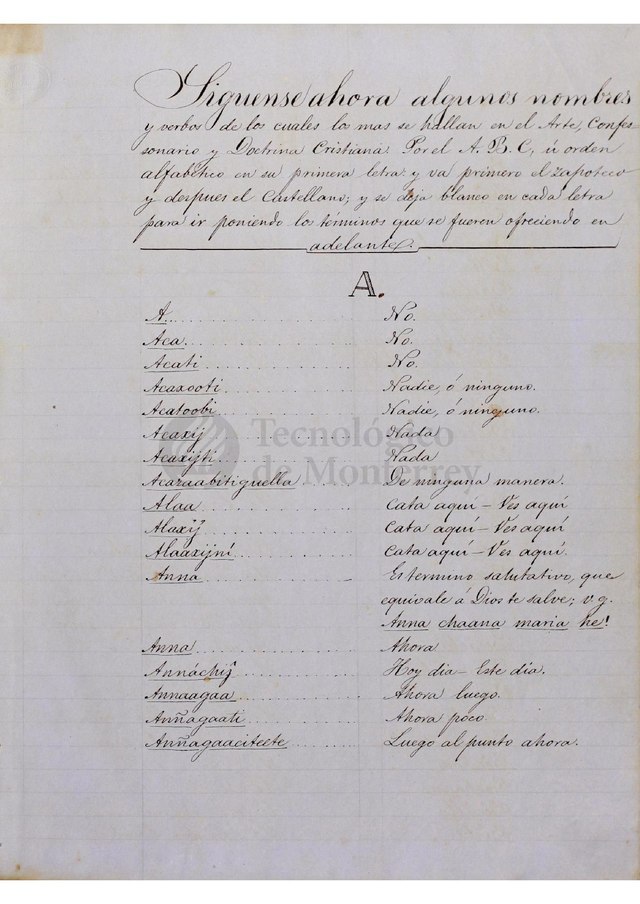 Siguense ahora algunos nombres
y verbos de los cuales lo mas se hallan en el Arte, Confes
sonario y Doctrina Cristiana. Por el A. B. C, ú orden
alfabético en su primera letra: y va primero el zapoteco
y despues el Castellano; y se deja blanco en cada letra
para ir poniendo los términos que se fueren ofreciendo en
adelante.
A.
A. No.
Aca. No.
Acati No.
Acaxooti Nadie, ó ninguno.
Acatoobi Nadie, ó ninguno.
Acaxij Nada
Acaxijti Nada
Acazaabitiguella De ninguna manera.
Alaa Cata aquí – Ves aquí
Alaxij Cata aquí – Ves aquí
Alaaxijni Cata aquí – Ves aquí.
Anna Es termino salutativo, que
equivale á Dios te salve; v.g.
Anna chaana maria he!
Anna Ahora
Annáchij Hoy dia – Este dia.
Annaagaa Ahora luego.
Anñagaati Ahora poco
Anñagaaciteete Luego al punto ahora.
Tecnológico
de Monterrey